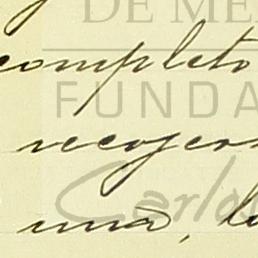 DE ME
completo
FUNDA
recojer
Carlos
una, l